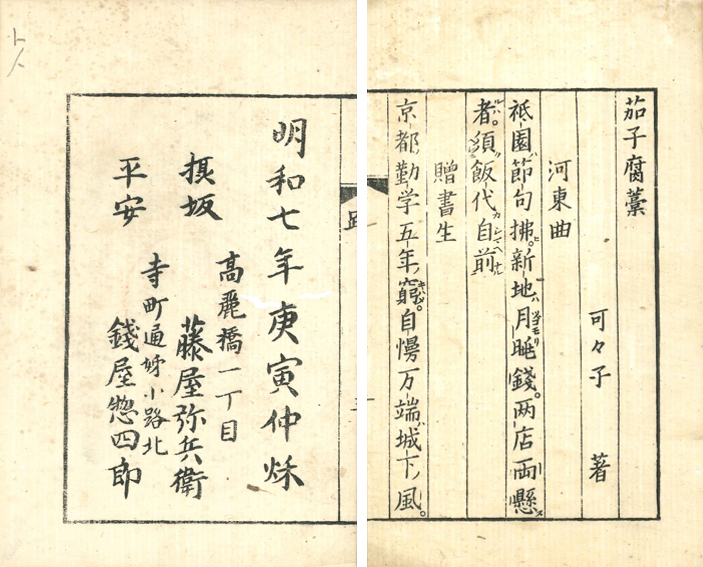 茄子腐藁
可々子 著
河東曲
祗園節句拂新地月眺錢。両店両懸
者。須飯代自前
贈書生
京都勤学五年窮。自慢万端城下風。
明和七年庚寅仲秌
高麗橋一丁目
摂坂 藤屋弥兵衛
寺町通姉小路北
平安 錢屋惣四郎